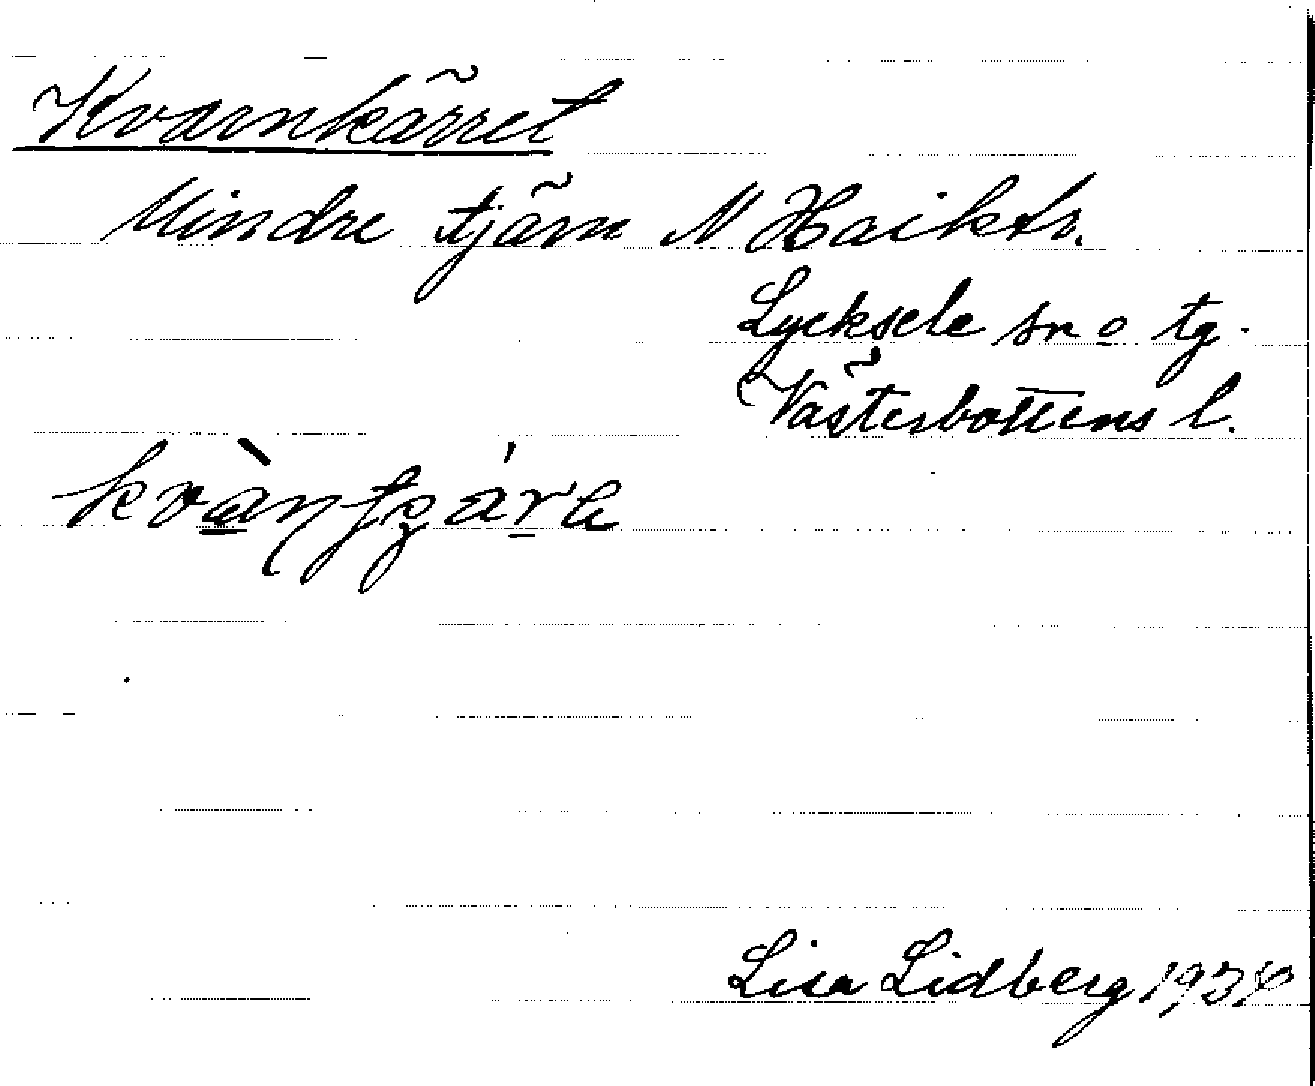 Kvarnkärret
Mindre tjärn N Haiktr.
Lycksele sn o tg.
Västerbottens l.
Lisa Lidberg 1934